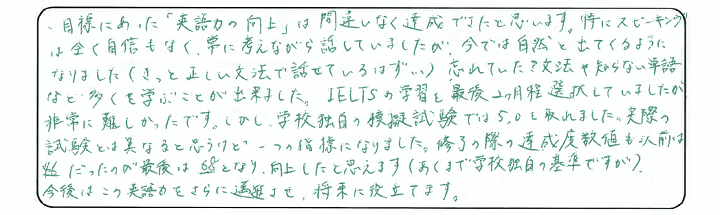 ・目標にあった「英語力の向上」は間違いなく達成できたと思います。特にスピーキング
は全く自信もなく、常に考えながら話していましたが、今では自然と出てくるように
なりました(きっと正しい文法で話せているはず…)忘れていた?文法や知らない単語
など多くを学ぶことが出来ました。IELTSの学習を最後2ヵ月程選択していましたが
非常に難しかったです。しかし、学校独自の模擬試験では5.0と取れました。実際の
試験とは異なると思うけど一つの指標になりました。修了の際の達成度数値も以前は
だったのが最後は68となり、向上したと思えます(あくまで学校独自の基準ですが)。
今後はこの英語力をさらに進させ、将来に役立てます。